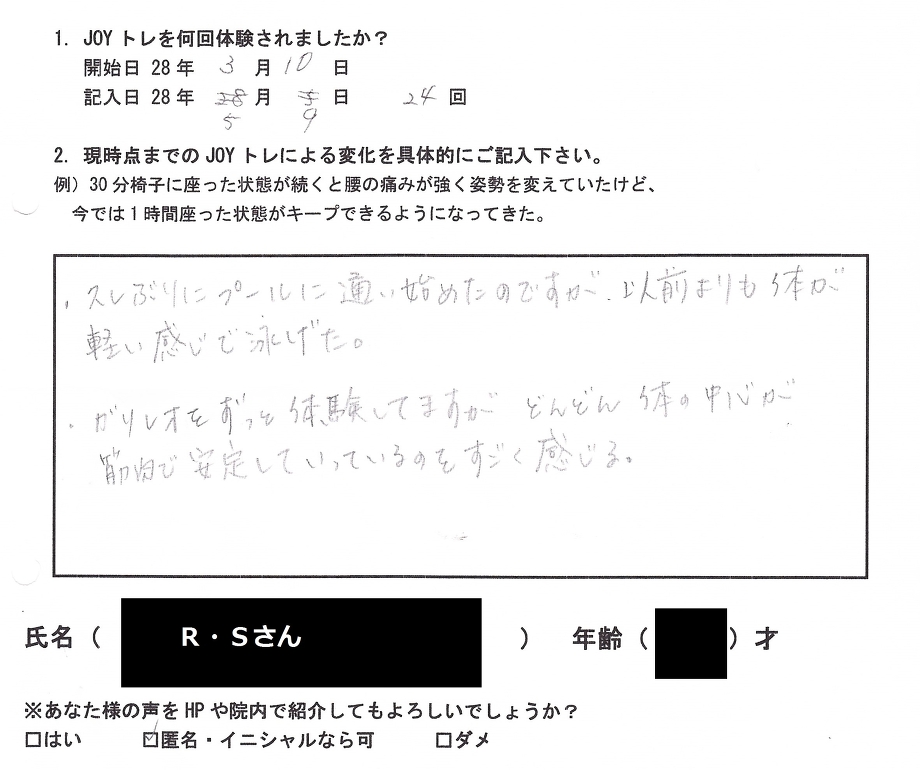 1. JOYトレを何回体験されましたか？
開始日 28年 3月10日
記入日 28年 28月 5日 24回
5 9
2. 現時点までのJOYトレによる変化を具体的にご記入下さい。
例）30分椅子に座った状態が続くと腰の痛みが強く姿勢を変えていたけど、
今では1時間座った状態がキープできるようになってきた。
・久しぶりにプールに通い始めたのですが、以前よりも体が
軽い感じで泳げた。
・ガリレオをずっと体験してますが どんどん体の中心が
筋肉で安定していっているのをすごく感じる。
氏名（ R・Sさん ） 年齢（ ）才
※あなた様の声をHPや院内で紹介してもよろしいでしょうか？
□はい ☑匿名・イニシャルなら可 □ダメ